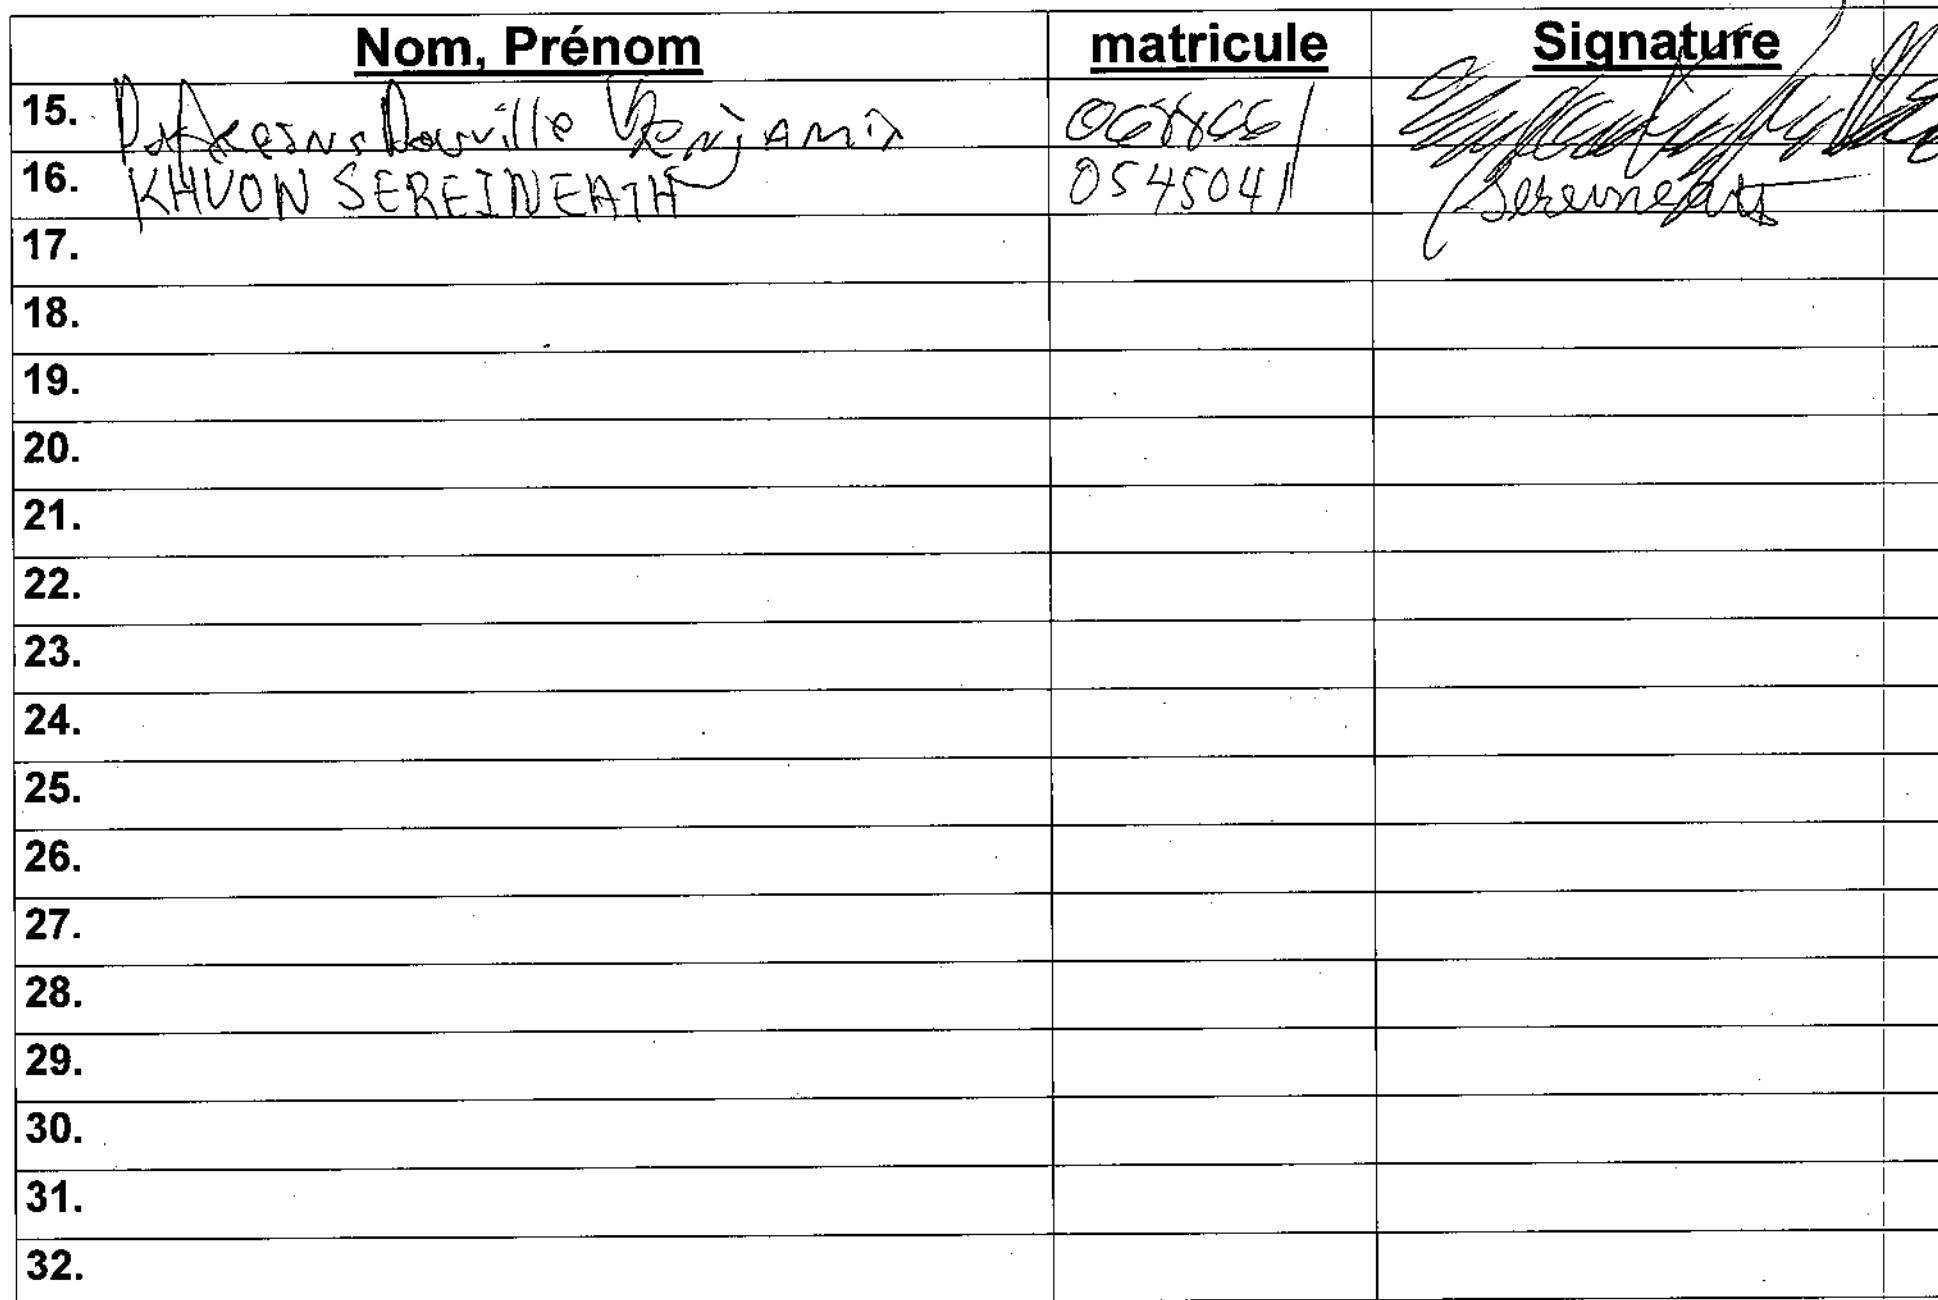 Nom, Prénom matricule Signature
15. Douville Benjamin
16. KHUON SEREINEATH 0545041 Sereineath
17.
18.
19.
20.
21.
22.
23.
24.
25.
26.
27.
28.
29.
30.
31.
32.